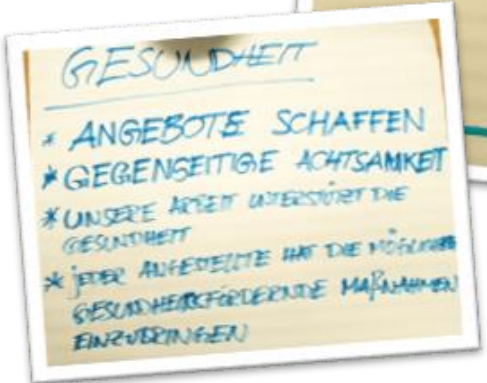 GESUNDHEIT
* ANGEBOTE SCHAFFEN
* GEGENSEITIGE ACHTSAMKEIT
* UNSERE ARBEIT UNTERSTÜTZT DIE
GESUNDHEIT
* JEDER ANGESTELLTE HAT DIE MÖGLICHKEIT
GESUNDHEITSFÖRDERNDE MAßNAHMEN
EINZUBRINGEN